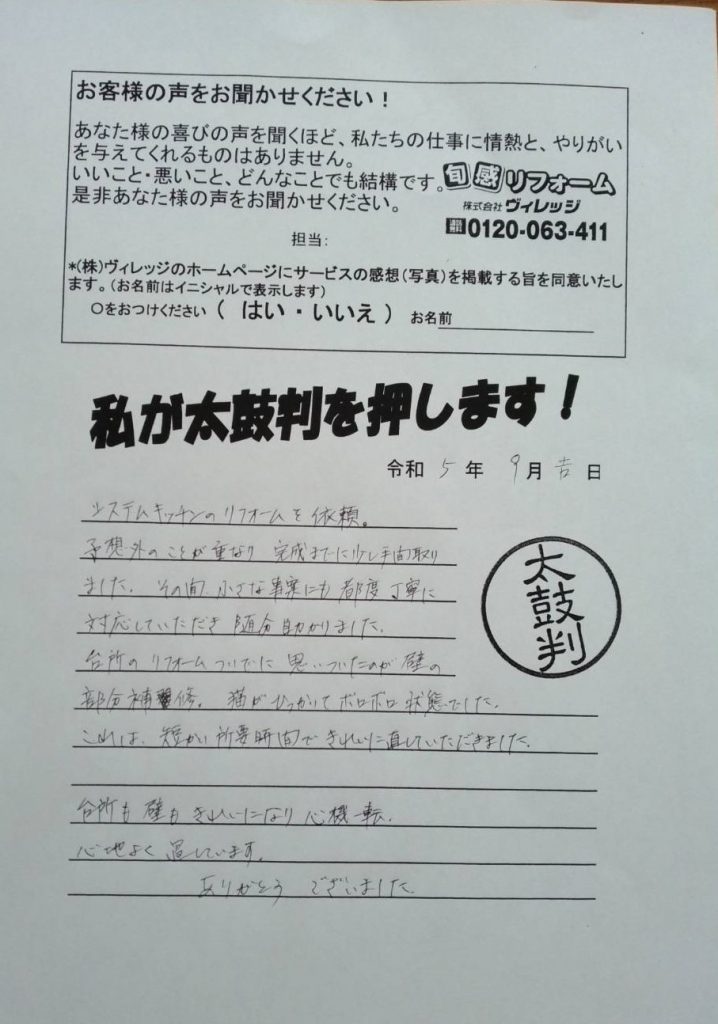 お客様の声をお聞かせください!
あなた様の喜びの声を聞くほど、私たちの仕事に情熱と、やりがい
を与えてくれるものはありません。
いいこと・悪いこと、どんなことでも結構です。
是非あなた様の声をお聞かせください。
旬感リフォーム
株式会社ヴィレッジ
通話無料0120-063-411
担当:
*(株)ヴィレッジのホームページにサービスの感想(写真)を掲載する旨を同意いたし
ます。(お名前はイニシャルで表示します)
○をおつけください ( はい・いいえ ) お名前
私が太鼓判を押します!
令和 5 年 9月 吉 日
システムキッチンのリフォームを依頼。
予想外のことが重なり 完成までに少し手間取り
ました。その間、小さな事案にも都度丁寧に
対応していただき 随分助かりました。
台所のリフォームついでに思いついたのが壁の
部分補修。猫がひっかいてボロボロ状態でした。
これは、短かい所要時間できれいに直していただきました。
台所も壁もきれいになり心機一転、
心地よく過しています。
ありがとう ございました。
太鼓判